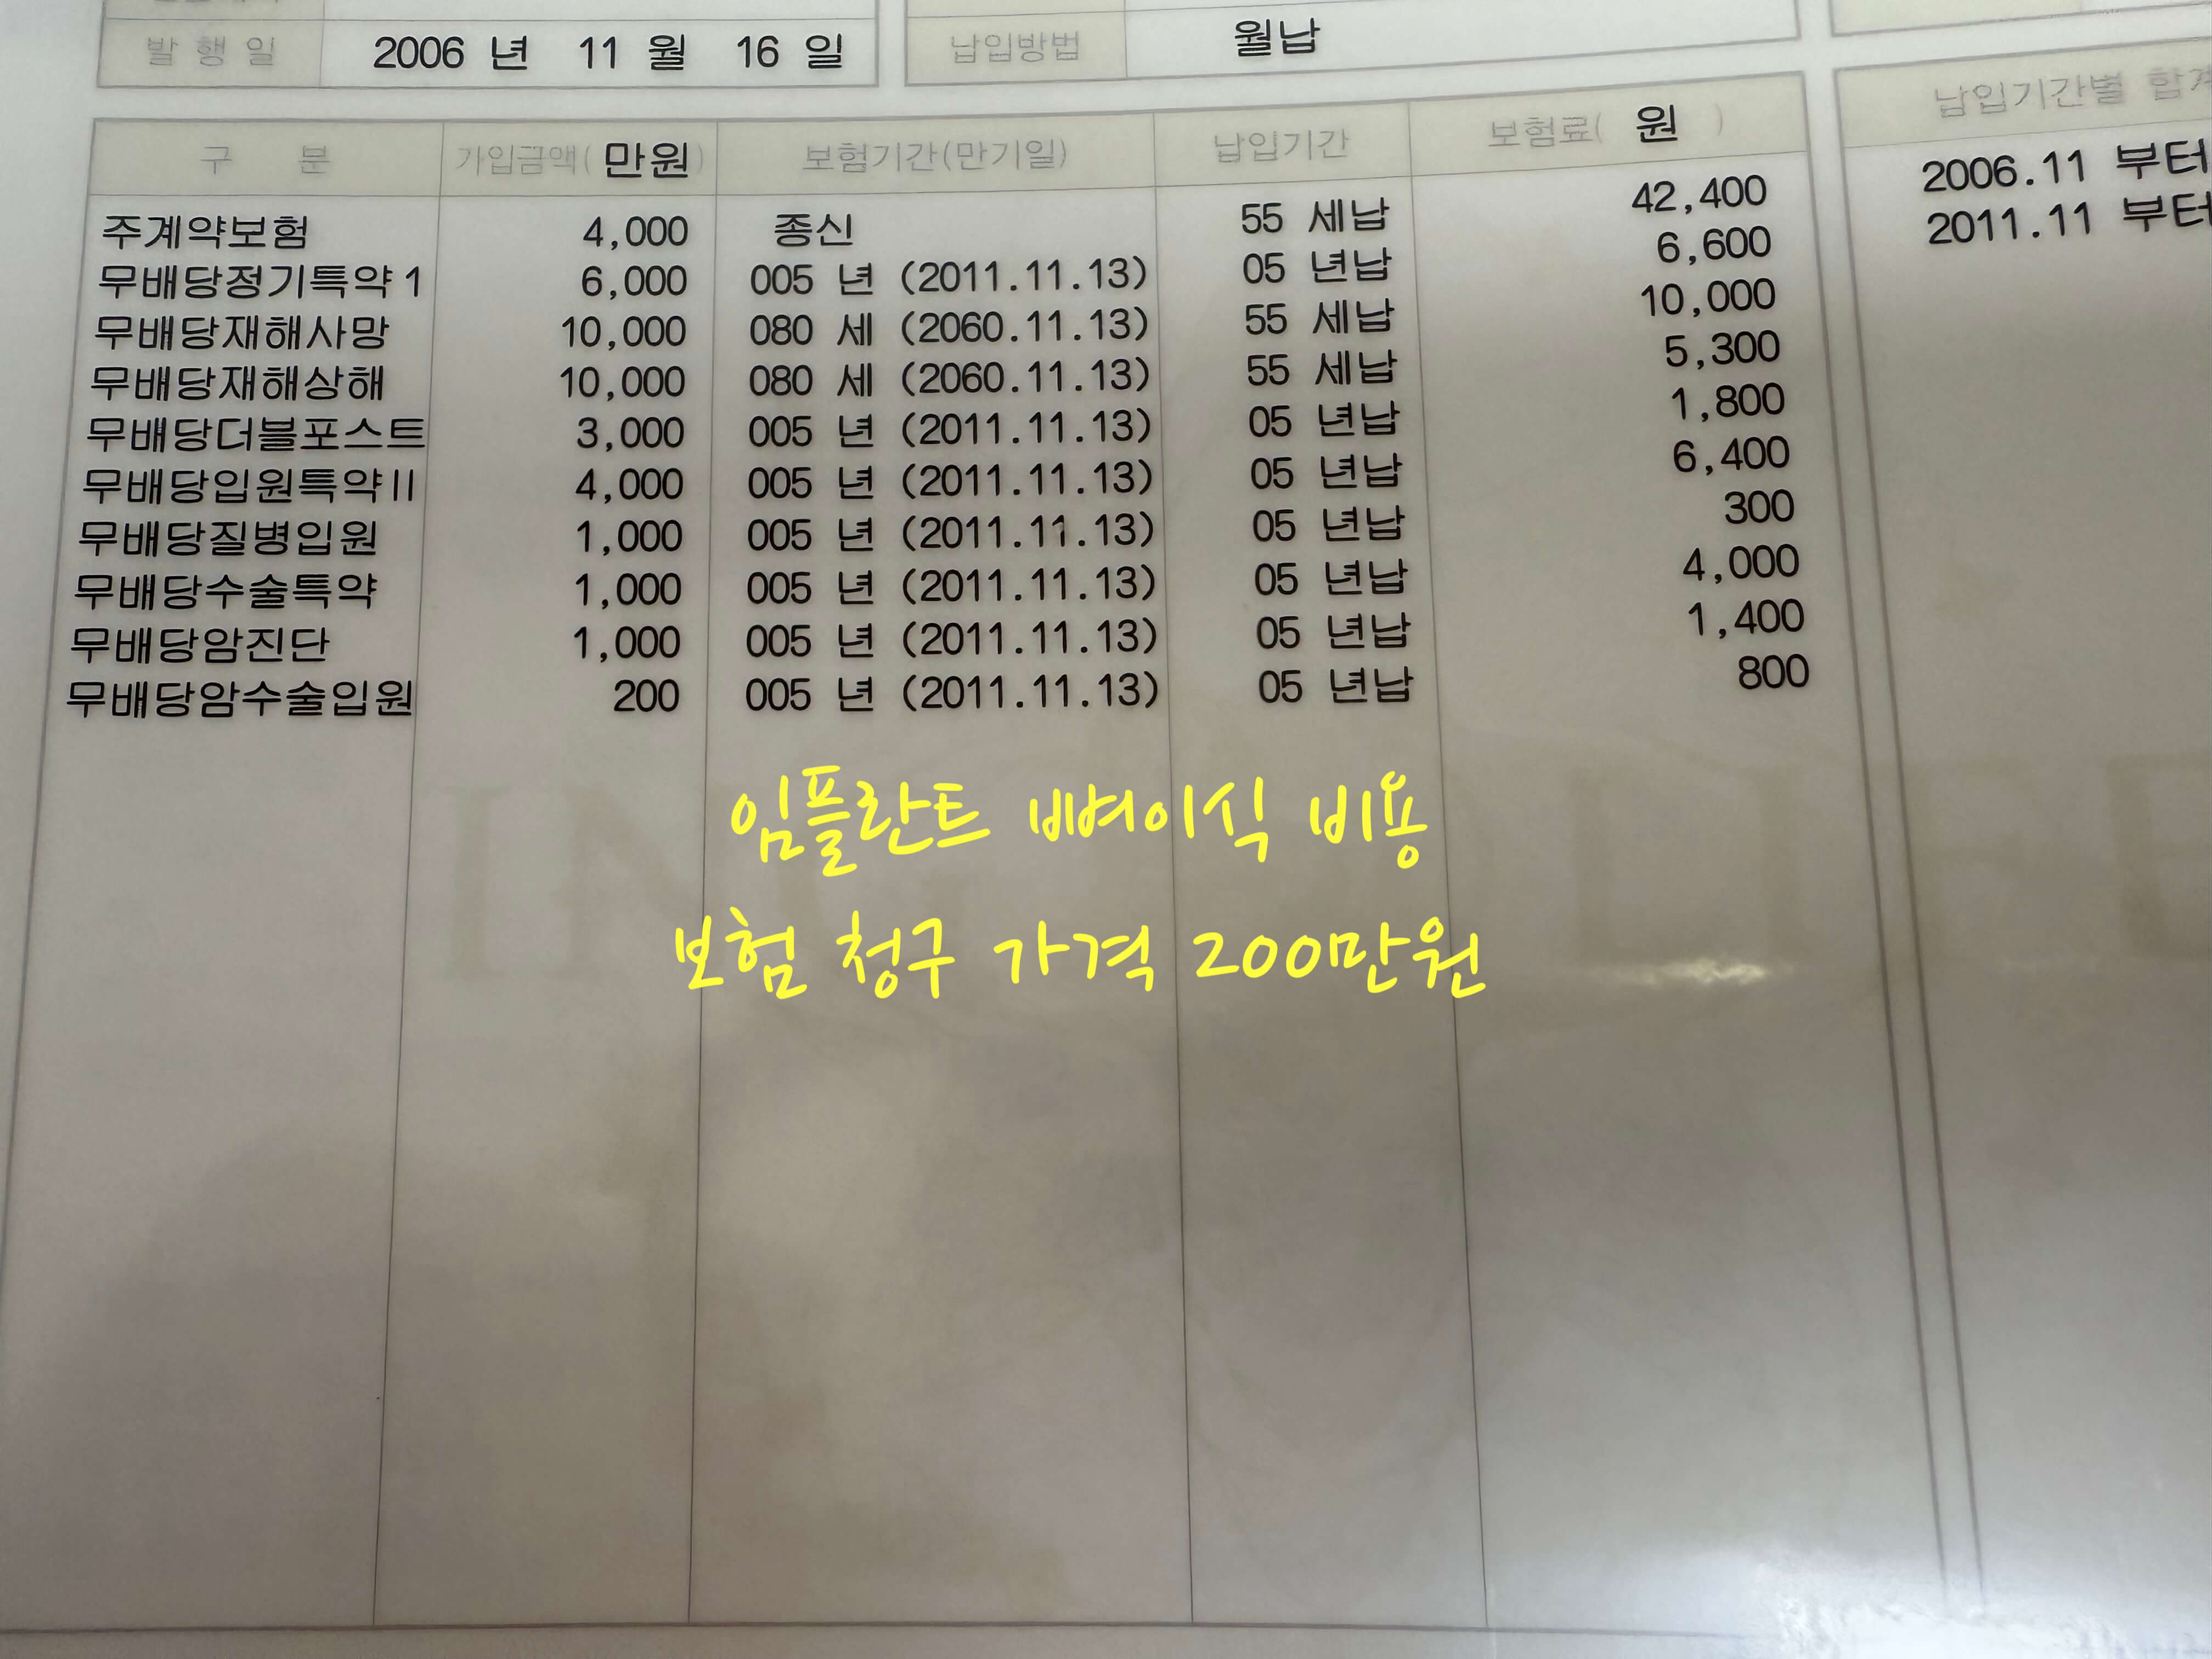 발 행 일 2006 년 11 월 16 일 납입방법 월납
구 분 가입금액( 만원 ) 보험기간(만기일) 납입기간 보험료( 원 ) 납입기간별
주계약보험 4,000 종신 55 세납 42,400 2006.11 부터
무배당정기특약1 6,000 005 년 (2011.11.13) 05 년납 6,600 2011.11 부터
무배당재해사망 10,000 080 세 (2060.11.13) 55 세납 10,000
무배당재해상해 10,000 080 세 (2060.11.13) 55 세납 5,300
무배당더블포스트 3,000 005 년 (2011.11.13) 05 년납 1,800
무배당입원특약II 4,000 005 년 (2011.11.13) 05 년납 6,400
무배당질병입원 1,000 005 년 (2011.11.13) 05 년납 300
무배당수술특약 1,000 005 년 (2011.11.13) 05 년납 4,000
무배당암진단 1,000 005 년 (2011.11.13) 05 년납 1,400
무배당암수술입원 200 005 년 (2011.11.13) 05 년납 800
임플란트 뼈이식 비용
보험 청구 가격 200만원
ING LIFE